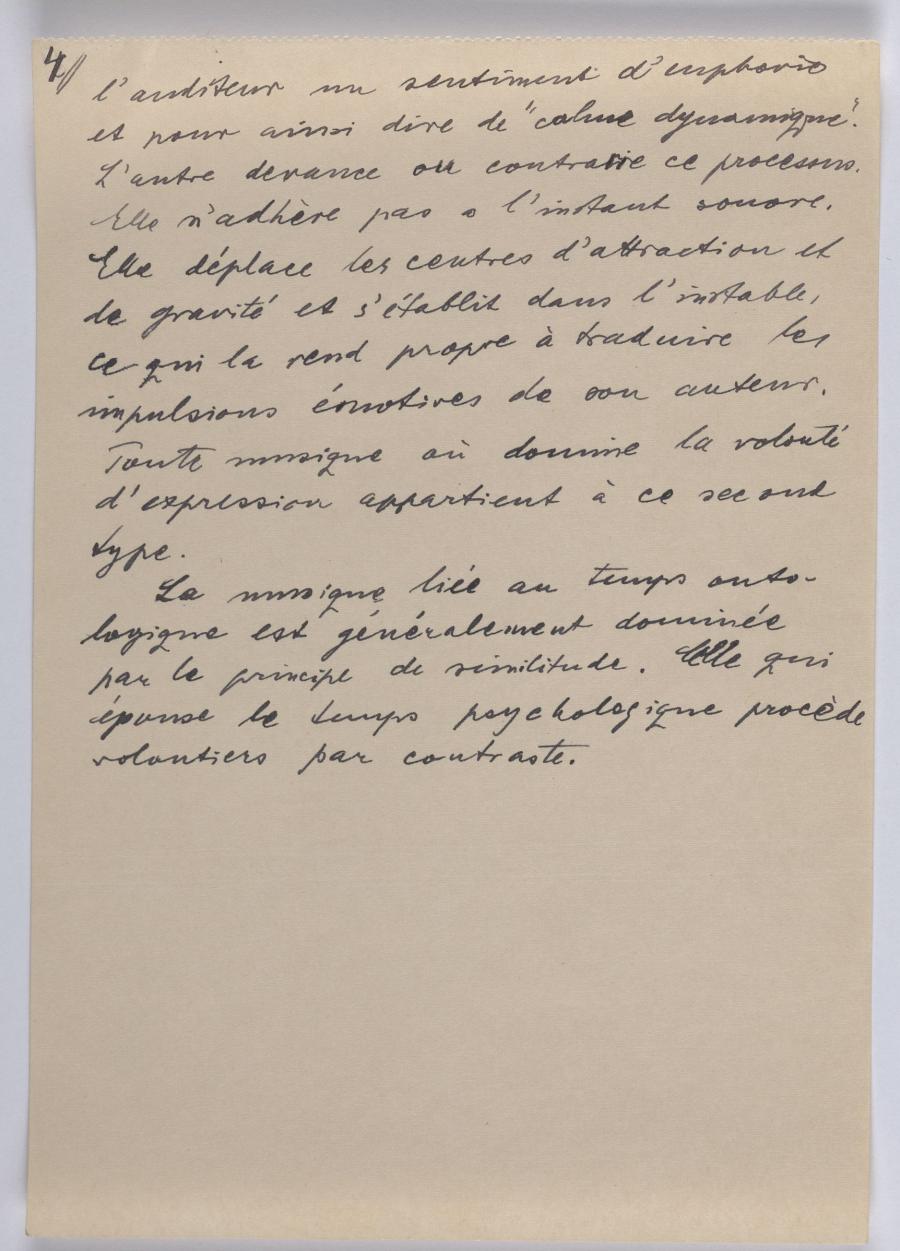 4//
l'auditeur un sentiment d'euphorie
et pour ainsi dire de "calme dynamique".
L'autre devance ou contrarie ce processus.
Elle n'adhère pas a l'instant sonore.
Elle déplace les centres d'attraction et
de gravité et s'établit dans l'instable,
ce qui la rend propre à traduire les
impulsions émotives de son auteur.
Toute musique où domine la volonté
d'expression appartient à ce second
type.
La musique liée au temps onto-
logique est généralement dominée
par le principe de similitude. Celle qui
épouse le temps psychologique procède
volontiers par contraste.